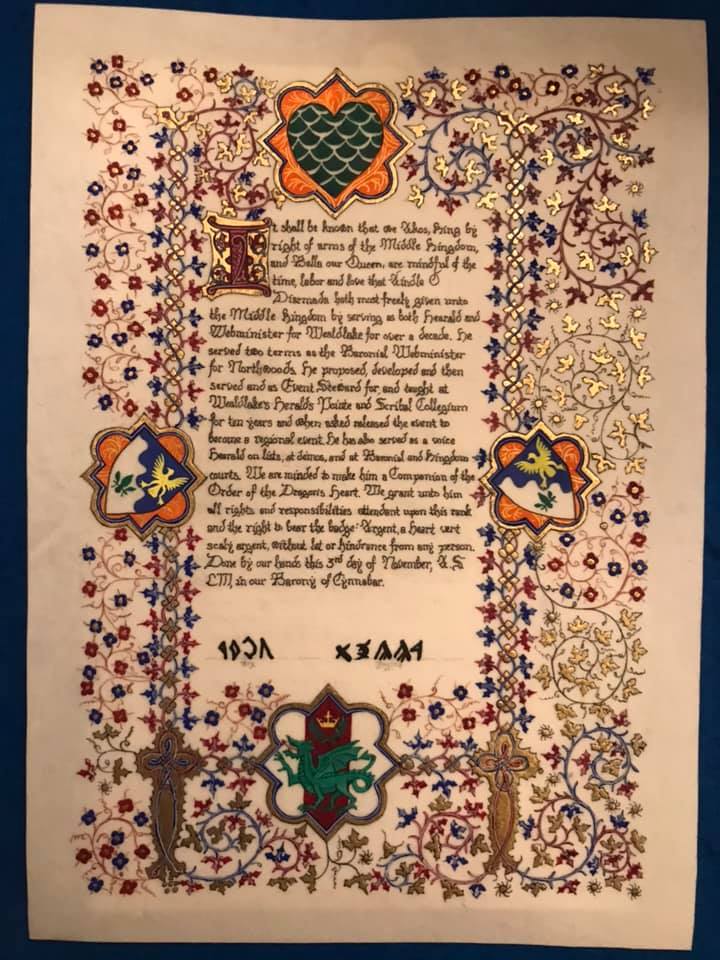 It shall be known that we Akos, King by
right of arms of the Middle Kingdom,
and Bella our Queen, are mindful of the
time, labor and love that Aindle O
Diarmada hath most freely given unto
the Middle Kingdom by serving as both Hearald and
Webminister for Wealdlake for over a decade. He
served two terms as the Baronial Webminister
for Northwoods. He proposed, developed and then
served and as Event Steward for, and taught at
Wealdlake's Heralds Pointe and Scribal Collegium
for ten years and when asked released the event to
become a regional event. He has also served as a voice
Herald on lists, at demos, and at Baronial and Kingdom
courts. We are minded to make him a Companion of the
Order of the Dragon's Heart. We grant unto him
all rights and responsibilities attendant upon this rank
and the right to bear the badge: Argent, a heart vert
scaly argent, without let or hindrance from any person.
Done by our hands this 3rd day of November, A.S
LIII, in our Barony of Cynnabar.